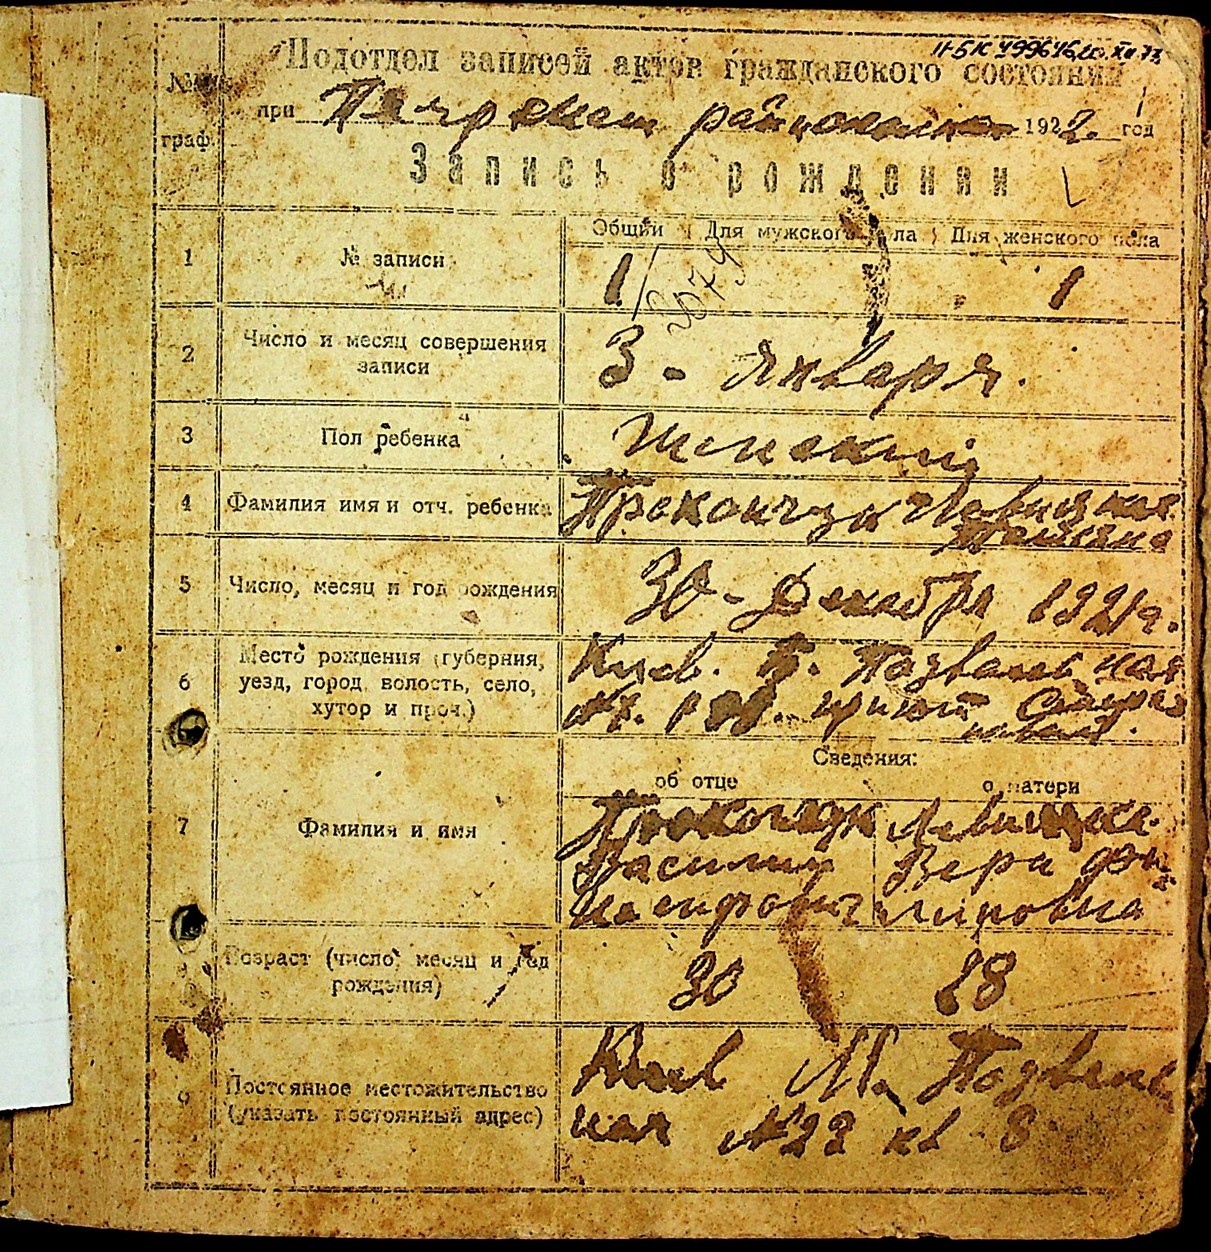 II-БК 499646, 20.XII.73
Подотдел записей актов гражданского состояния
№№
граф.
при районном 1922. год
Запись о рождении
Общий Для мужского пола Для женского пола
1 № записи 1 1
3079
2 Число и месяц совершения записи 3 - Января.
3 Пол ребенка Женский
4 Фамилия имя и отч. ребенка Прокопчук Левицкая
Татьяна
5 Число, месяц и год рождения 30 - Декабря 1921 г.
6 Место рождения (губерния, уезд, город, волость, село, хутор и проч.) Киев.
приют
Сведения:
об отце о матери
7 Фамилия и имя Прокопчук Левицкая
Василий Вера Фи
липовна
8 Возраст (число, месяц и год рождения) 30 28
9 Постоянное местожительство (указать постоянный адрес) Киев М. Подваль
ная №23 кв 8